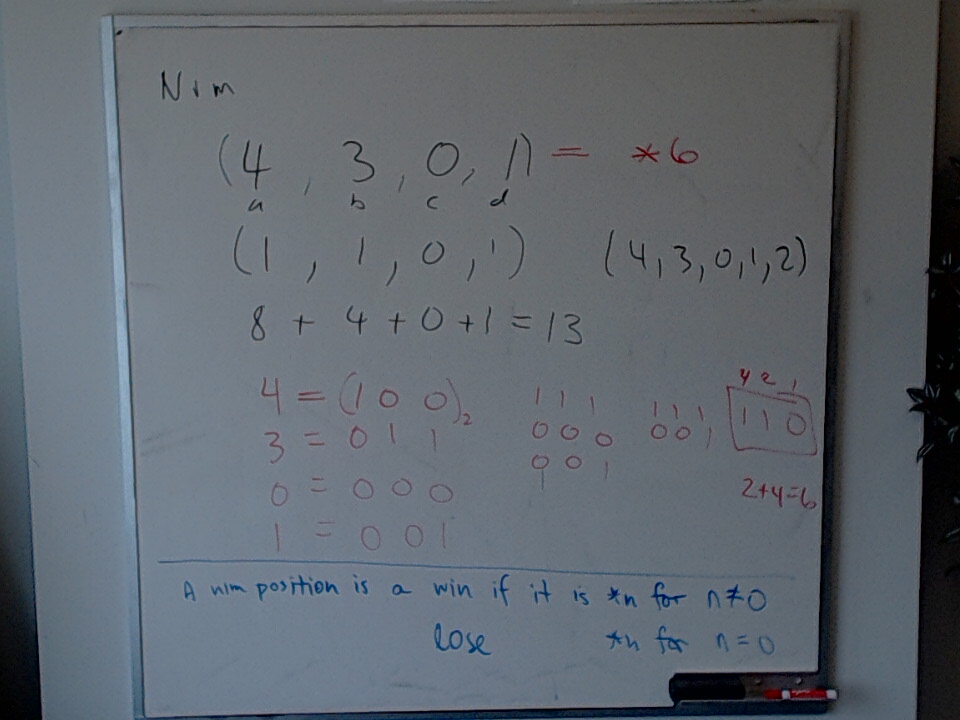 Nim
(4, 3, 0, 1) = *6
a b c d
(1, 1, 0, 1) (4, 3, 0, 1, 2)
8 + 4 + 0 + 1 = 13
4 2 1
4 = (1 0 0)₂ 1 1 1 1 1 1 1 1 0
3 = 0 1 1 0 0 0 0 0 1
0 0 1
0 = 0 0 0 2+4=6
1 = 0 0 1
A nim position is a win if it is *n for n≠0
lose *n for n=0